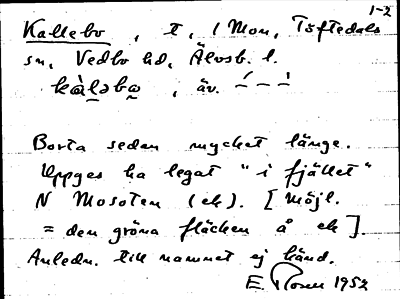 1-2
Kallebo, t, 1 Mon, Töftedals
sn, Vedbo hd, Älvsb. l.
kàləba, äv. ––
Borta sedan mycket länge.
Uppges ha legat "i fjället"
N Mosoten (ek). [Möjl.
= den gröna fläcken å ek].
Anledn. till namnet ej känd.
E. 1952